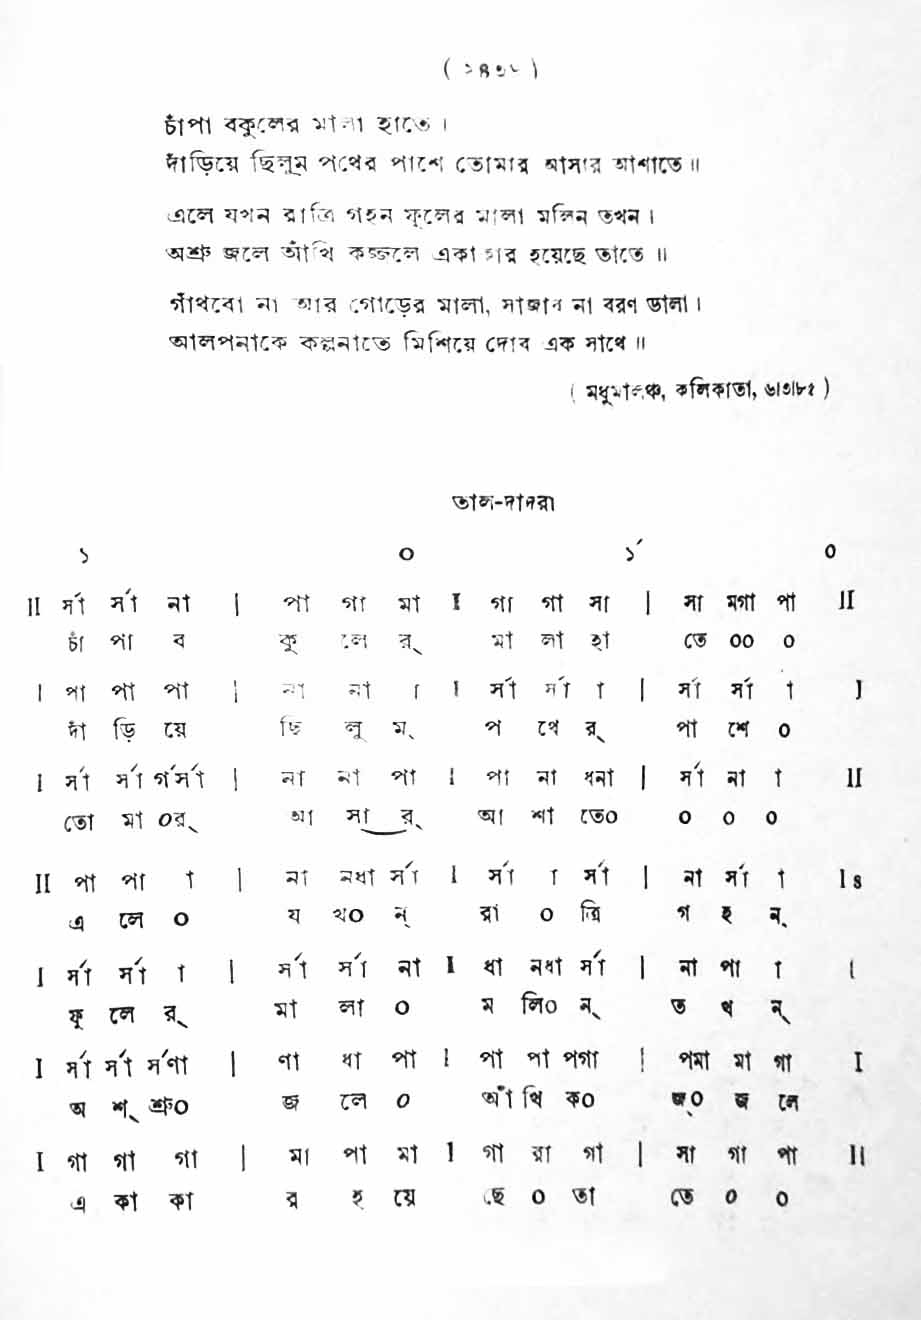 চাঁপা বকুলের মালা হাতে।
দাঁড়িয়ে ছিলুম পথের পাশে তোমার আসার আশাতে॥
এলে যখন রাত্রি গহন ফুলের মালা মলিন তখন।
অশ্রু জলে আঁখি কজ্জলে একাকার হয়েছে তাতে॥
গাঁথবো না আর গোড়ের মালা, সাজাব না বরণ ডালা।
আলপনাকে কল্পনাতে মিশিয়ে দোব এক সাথে॥
( মধুমালঞ্চ, কলিকাতা, ৬।৩।৮৫ )
তাল-দাদরা
১ ০ ১´ ০
II র্সা র্সা না | পা গা মা I গা গা সা | সা মগা পা II
চাঁ পা ব কু লে র্ মা লা হা তে ০০ ০
I পা পা পা | না না া I র্সা র্সা া | র্সা র্সা া I
দাঁ ড়ি য়ে ছি লু ম্ প থে র্ পা শে ০
I র্সা র্সা র্গর্সা | না না পা I পা না ধনা | র্সা না া II
তো মা ০র্ আ সা র্ আ শা তে০ ০ ০ ০
II পা পা া | না নধা র্সা I র্সা া র্সা | না র্সা া I s
এ লে ০ য খ০ ন্ রা ০ ত্রি গ হ ন্
I র্সা র্সা া | র্সা র্সা না I ধা নধা র্সা | না পা া I
ফু লে র্ মা লা ০ ম লি০ ন্ ত খ ন্
I র্সা র্সা র্সণা | ণা ধা পা I পা পা পগা | পমা মা গা I
অ শ্ শ্রু০ জ লে ০ আঁ খি ক০ জ্০ জ লে
I গা গা গা | মা পা মা I গা রা গা | সা গা পা II
এ কা কা র হ য়ে ছে ০ তা তে ০ ০